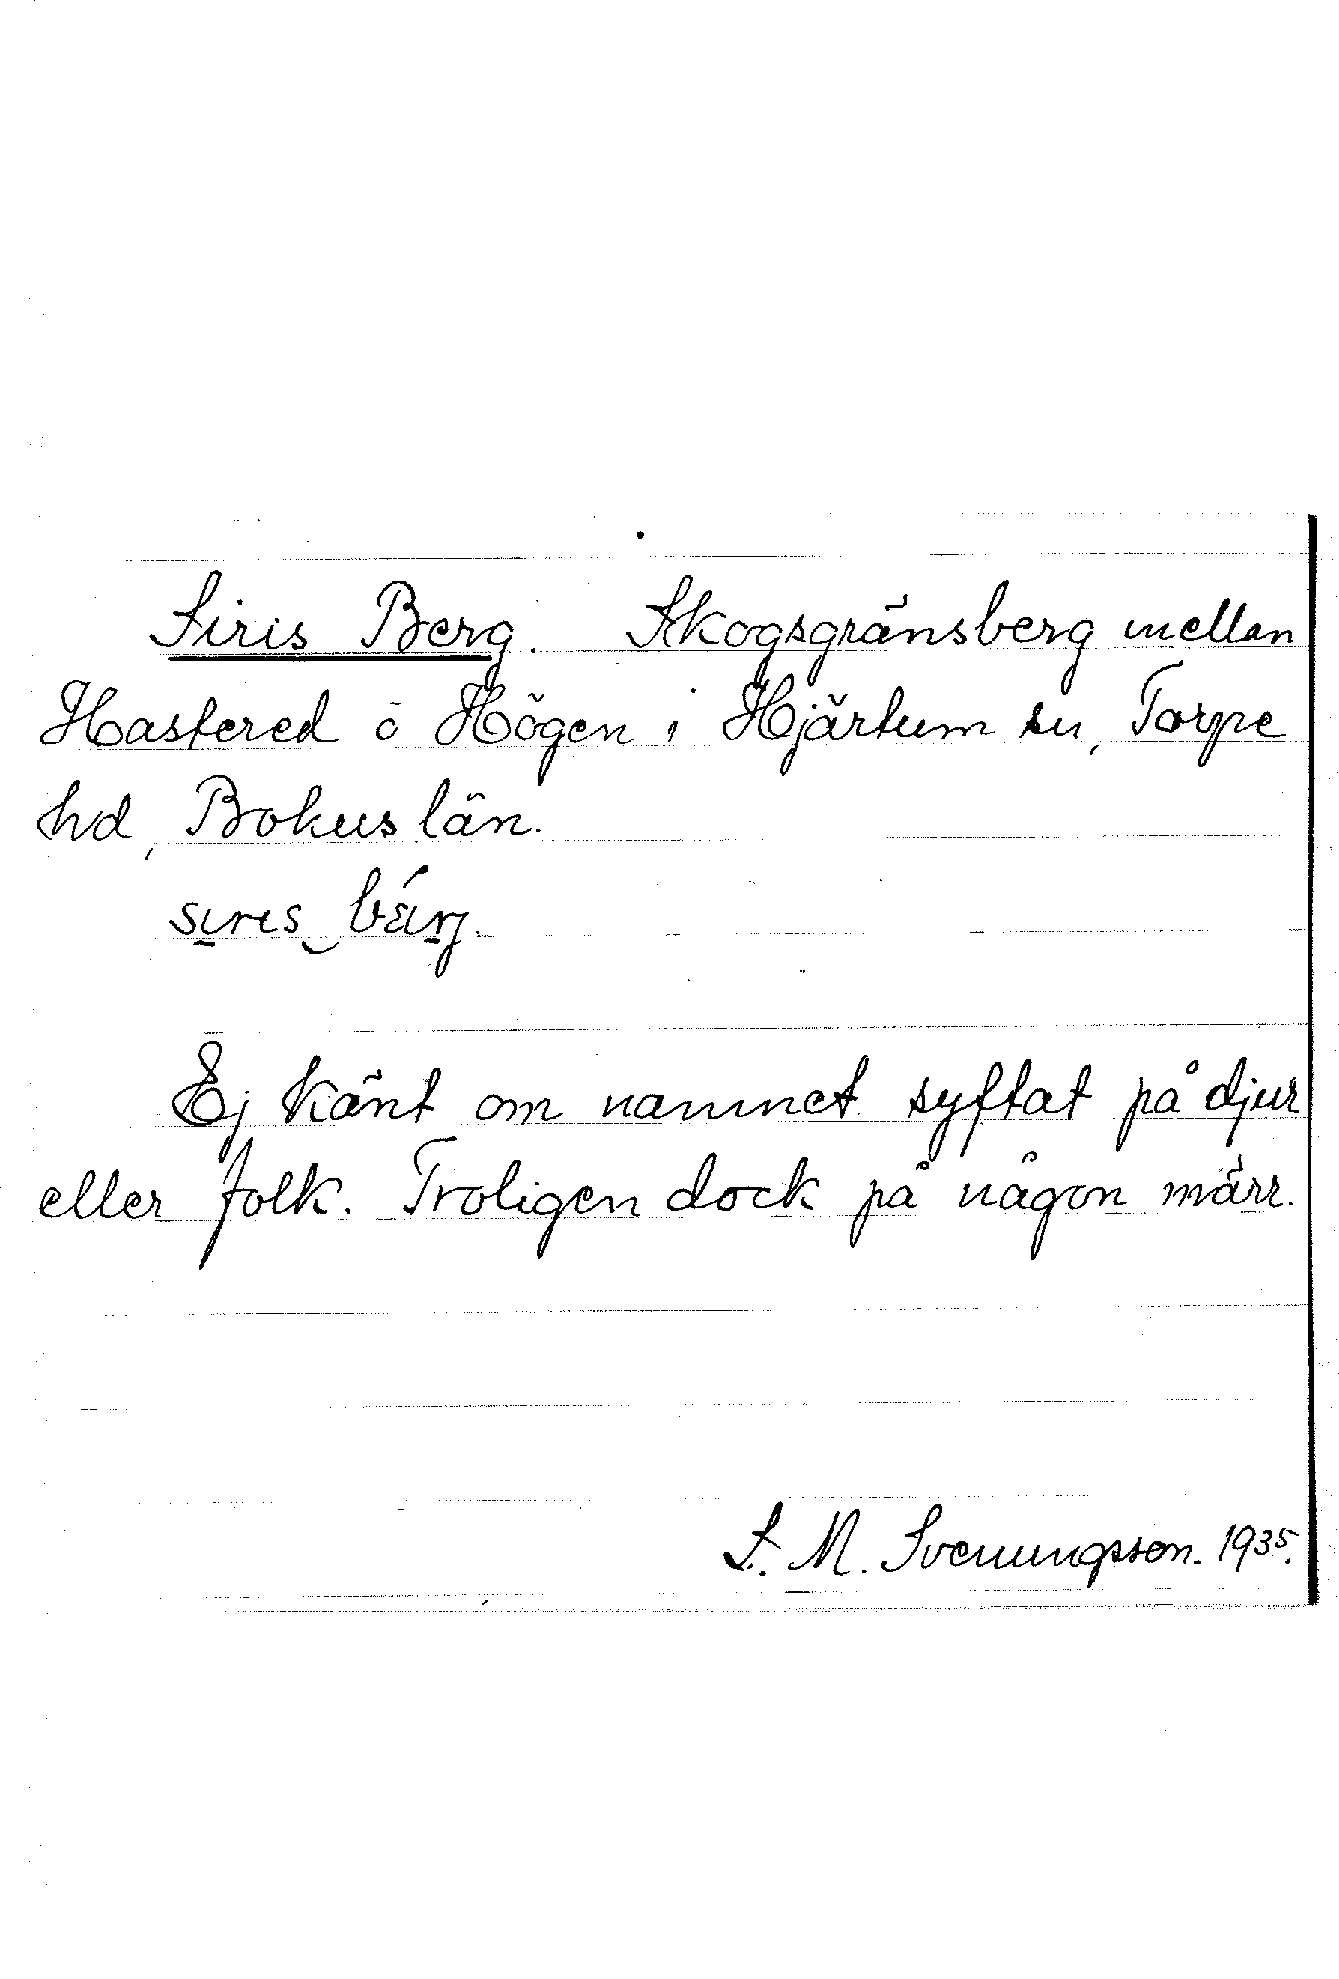 Siris Berg. Skogsgränsberg mellan
Hastered ö Högen i Hjärtum sn, Torpe
hd, Bohus län.
Ej känt om namnet syftat på djur
eller folk. Troligen dock på någon märr.
S. M. Svenungsson. 1935.